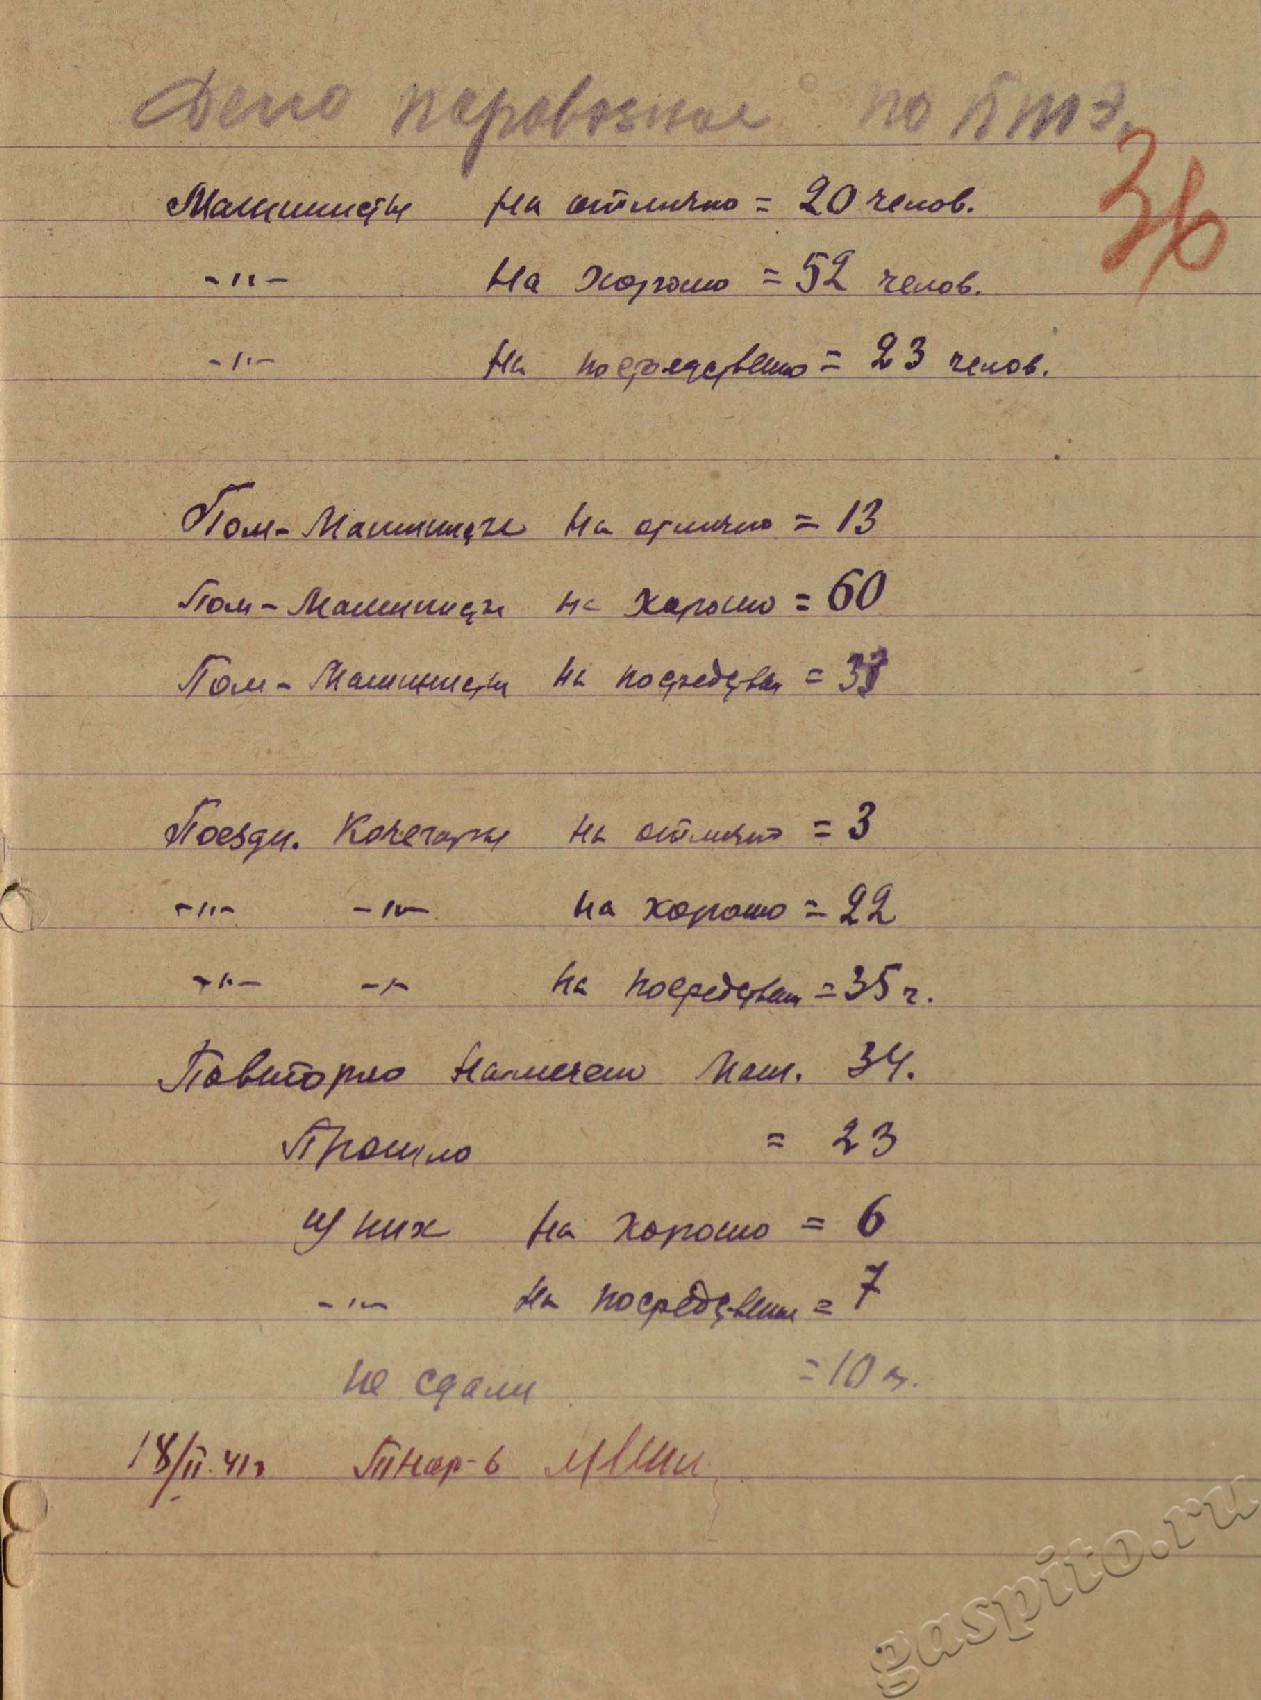 Депо паровозное по ПТЭ.
36
Машинисты на отлично = 20 челов.
-"- На хорошо = 52 челов.
-"- На посредствено = 23 челов.
Пом-Машинисты на отлично = 13
Пом-Машинисты на хорошо = 60
Пом-Машинисты на посредствен =
Поездн. Кочегары на отлично = 3
-"- -"- на хорошо = 22
-"- -"- на посредствен = 35 ч.
Повторно намечено Маш. 34.
Прошло = 23
из них на хорошо = 6
-"- на посредствен = 7
не сдали = 10 ч.
18/II.41г
gaspito.ru